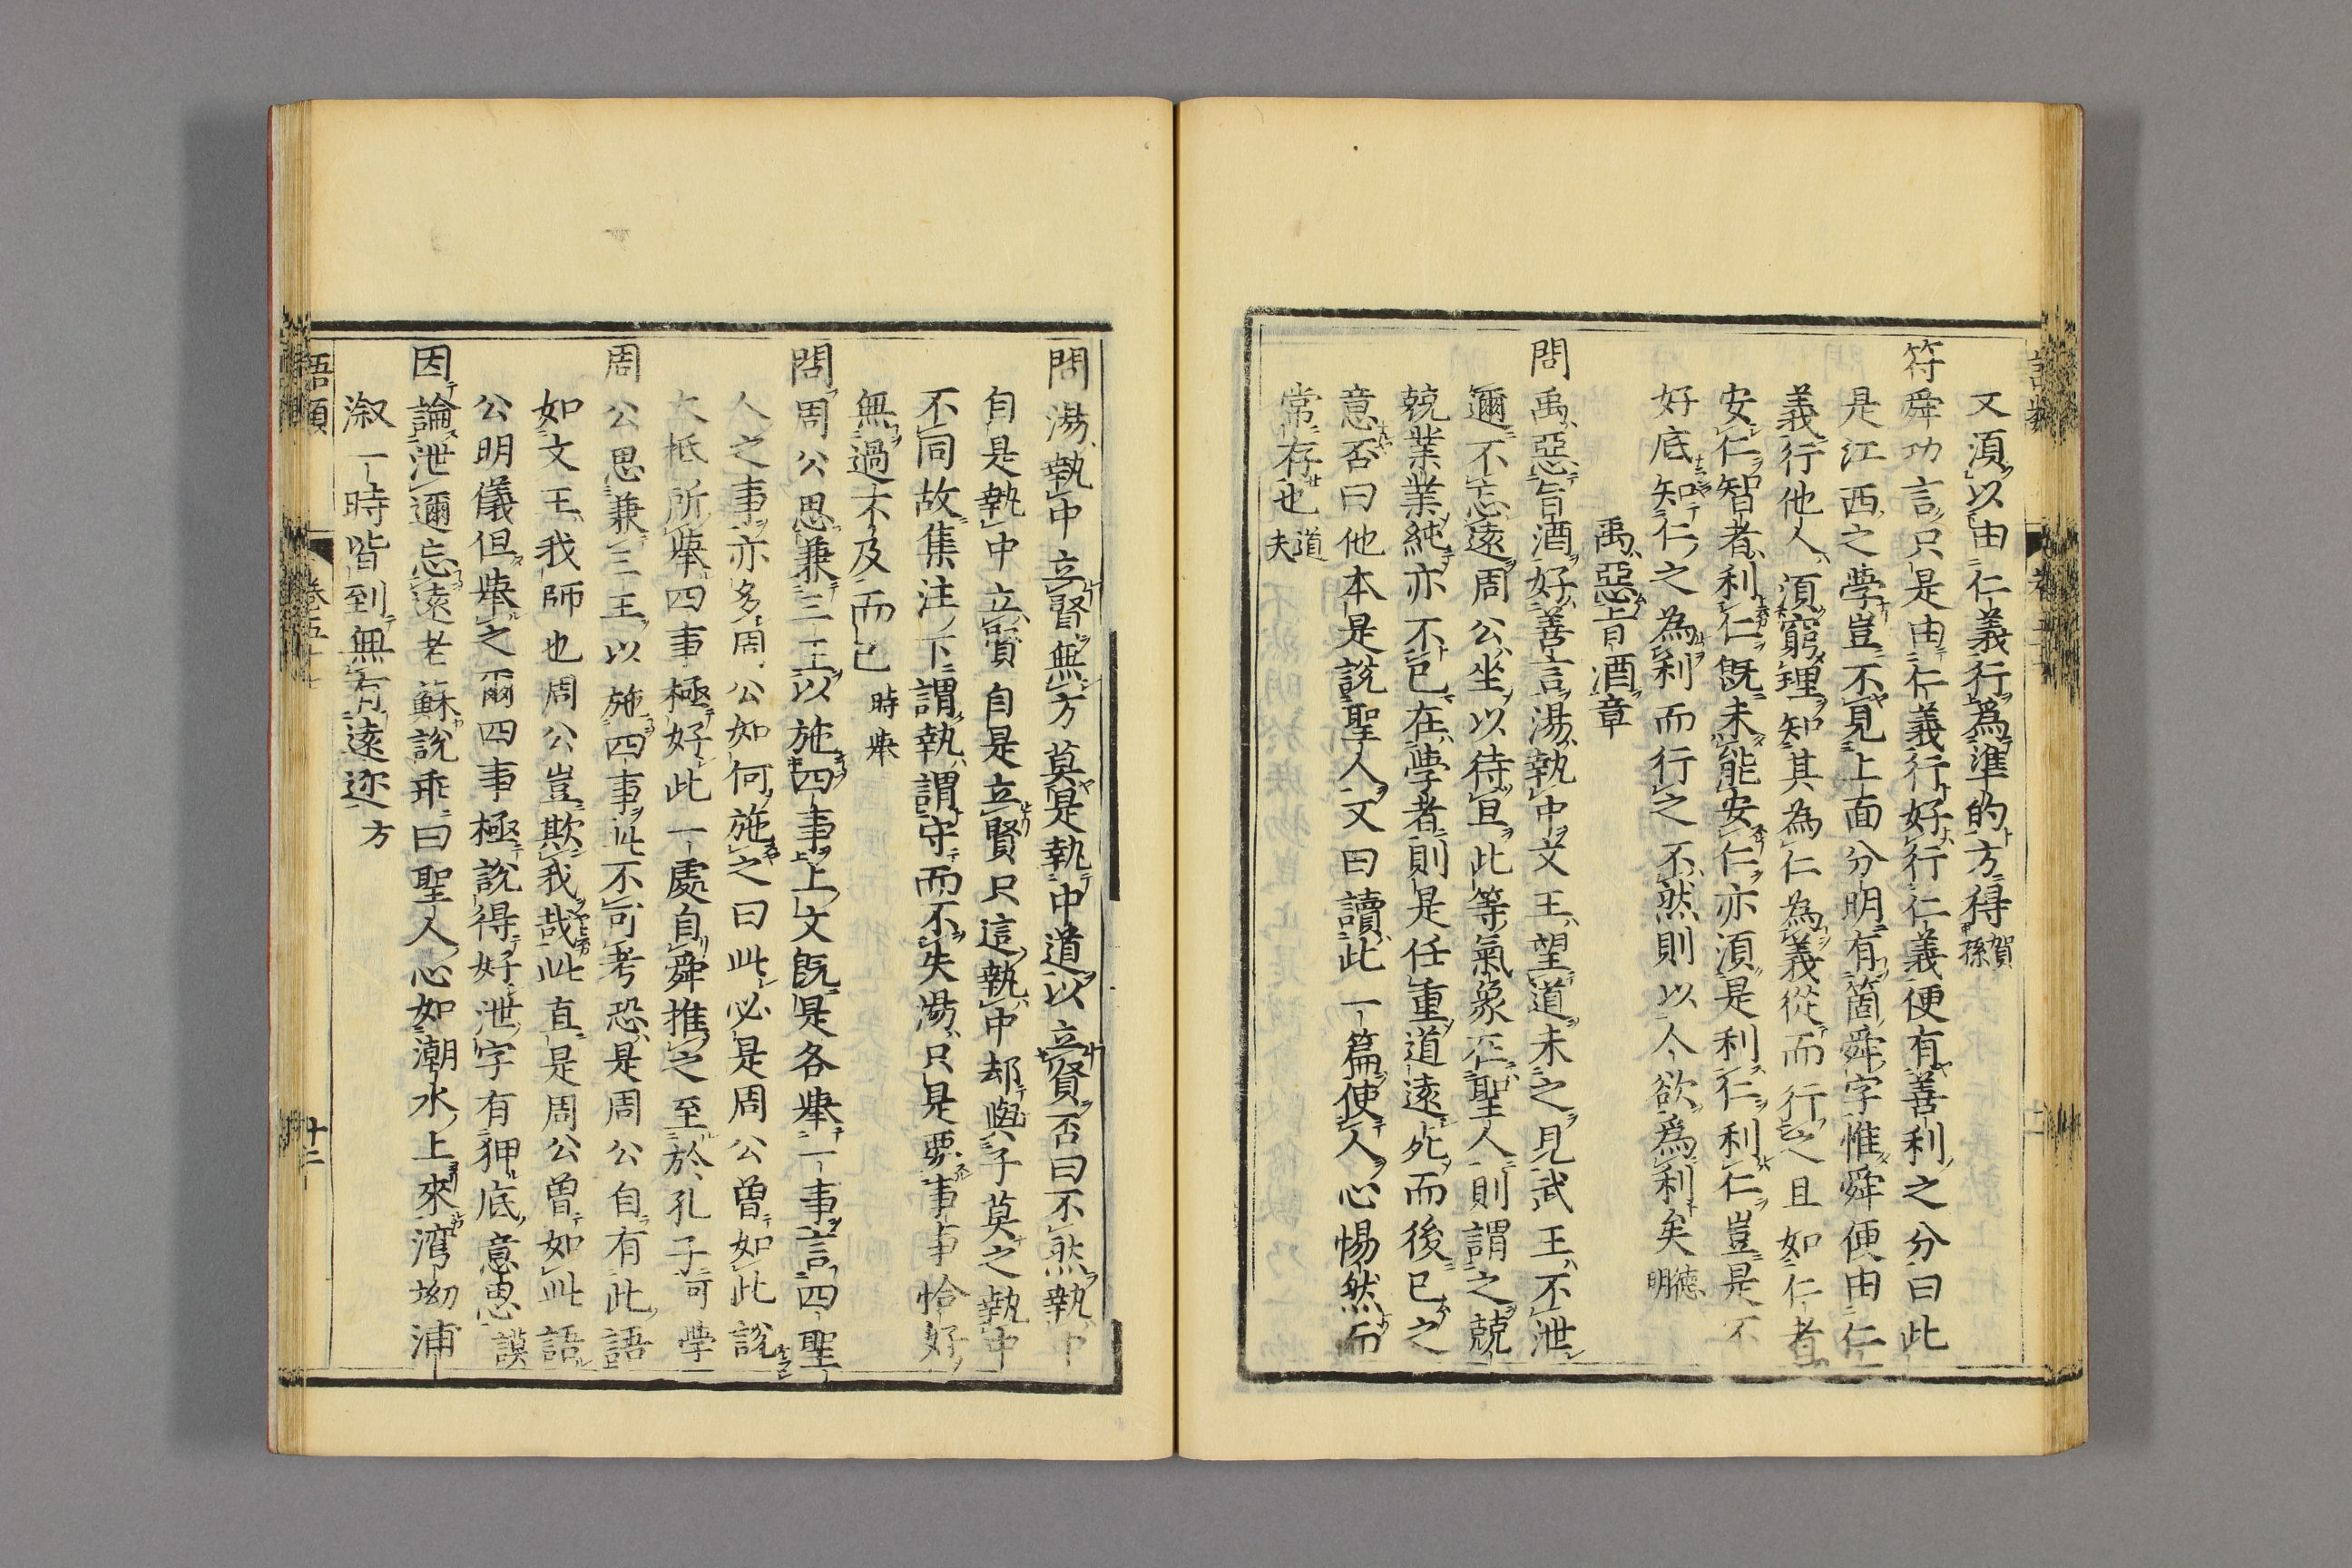 又湏以由仁義行為準的方得賀孫
符舜功言只是由仁義行好行仁義便有善利之分曰此
是江西之學豈不見上面分明有箇舜字惟舜便由仁
義行他人湏窮理知其為仁為義從而行之且如仁者
安仁智者利仁旣未能安仁亦湏是利仁利仁豈是不
好底知仁之為利而行之不然則以人欲為利矣德明
禹惡旨酒章
問禹惡旨酒好善言湯執中文王望道未之見武王不泄
邇不忘遠周公坐以待旦此等氣象在聖人則謂之兢
兢業業純亦不已在學者則是任重道遠死而後已之
意否曰他本是說聖人又曰讀此一篇使人心惕然而
常存也道夫
問湯執中立賢無方莫是執中道以立賢否曰不然執中
自是執中立賢自是立賢只這執中却與子莫之執中
不同故集注下謂執謂守而不失湯只是要事事恰好
無過不及而已時舉
問周公思兼三王以施四事上文旣是各舉一事言四聖
人之事亦多周公如何施之曰此必是周公曾如此說
大抵所舉四事極好此一處自舜推之至於孔子可學
周公思兼三王以施四事此不可考恐是周公自有此語
如文王我師也周公豈欺我哉此直是周公曾如此語
公明儀但舉之爾四事極說得好泄字有狎底意思謨
因論泄邇忘遠老蘇說乖曰聖人心如潮水上來灣坳浦
溆一時皆到無有遠迩方
語類
卷五十七
十二